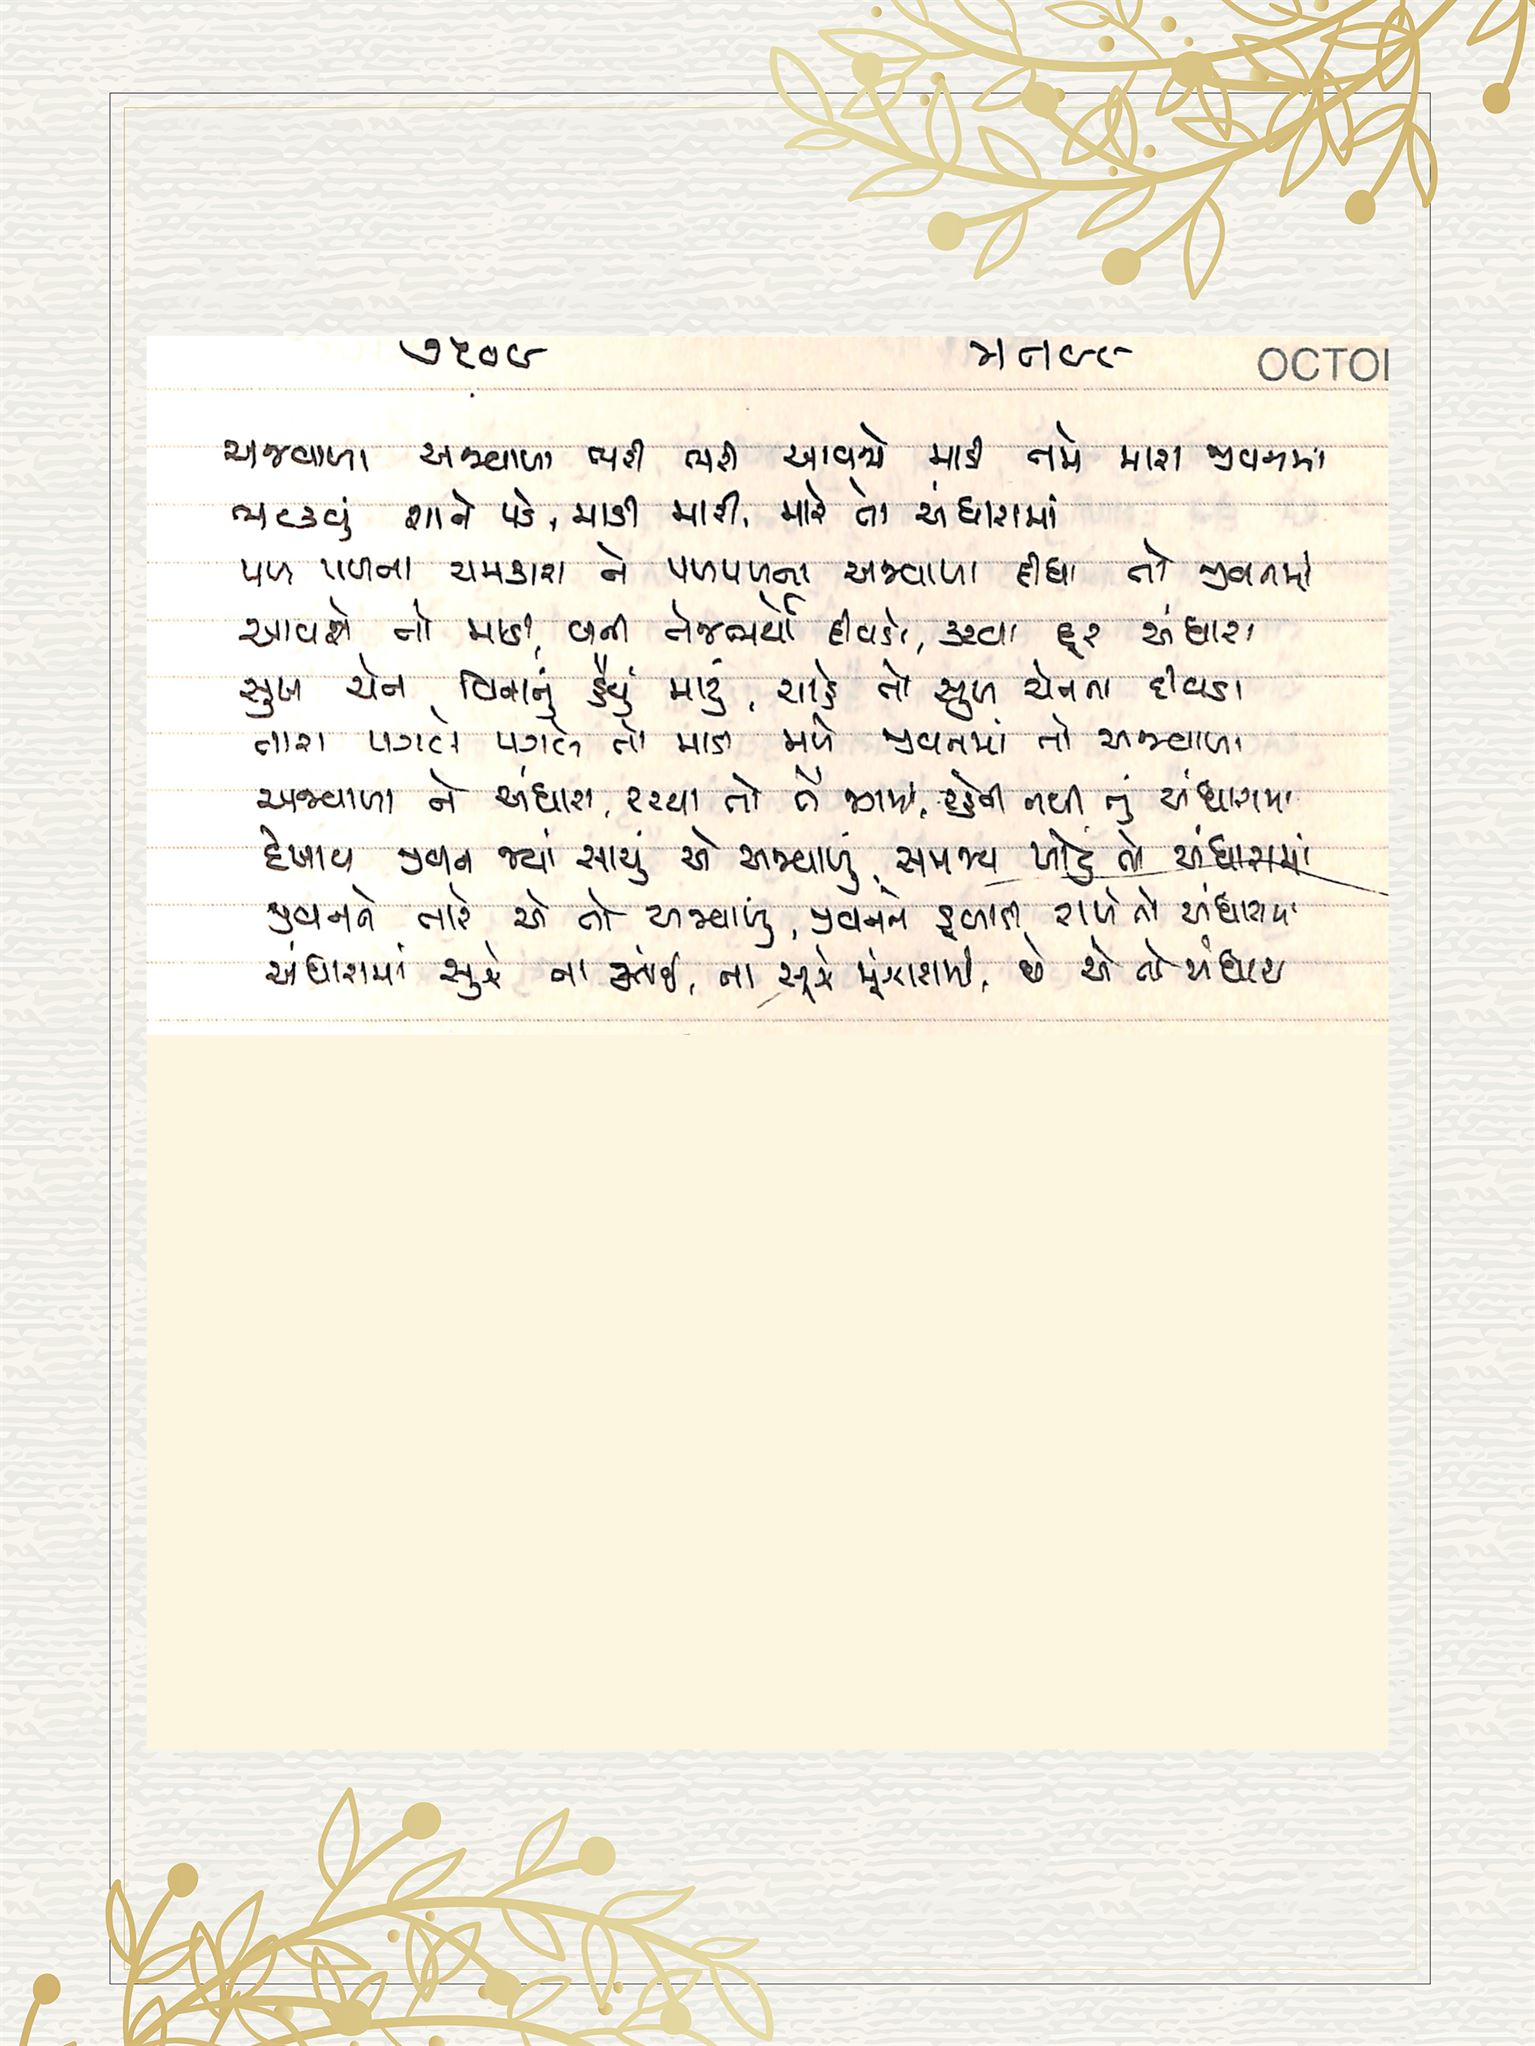 OCTOI
અજવાળા અજવાળા ભરી ભરી આવજો માડી તમે મારા જીવનમાં
ભટકવું શાને પડે, માડી મારી, મારે તો અંધારામાં
પળ પળના ચમકારા ને પળપળના અજવાળા દીધા તો જીવનમાં
આવજો તો માડી, બની તેજભર્યો દીવડો, કરવા દૂર અંધારા
સુખ ચેન વિનાનું હૈયું મારું, ચાહે તો સુખ ચેનના દીવડા
તારા પગલે પગલે તો માડી મળે જીવનમાં તો અજવાળા
અજવાળા ને અંધારા, રચ્યા તો તેં જગમાં, રહેતી નથી તું અંધારામાં
દેખાય જીવન જ્યાં સાચું એ અજવાળું, સમજાય ખોટું તો અંધારામાં
જીવનને તારે એ તો અજવાળું, જીવનને ડુબાડી રાખે તો અંધારામાં
અંધારામાં સુઝે ના કાંઈ, ના સૂઝે મૂંઝારામાં, છે એ તો અંધારા